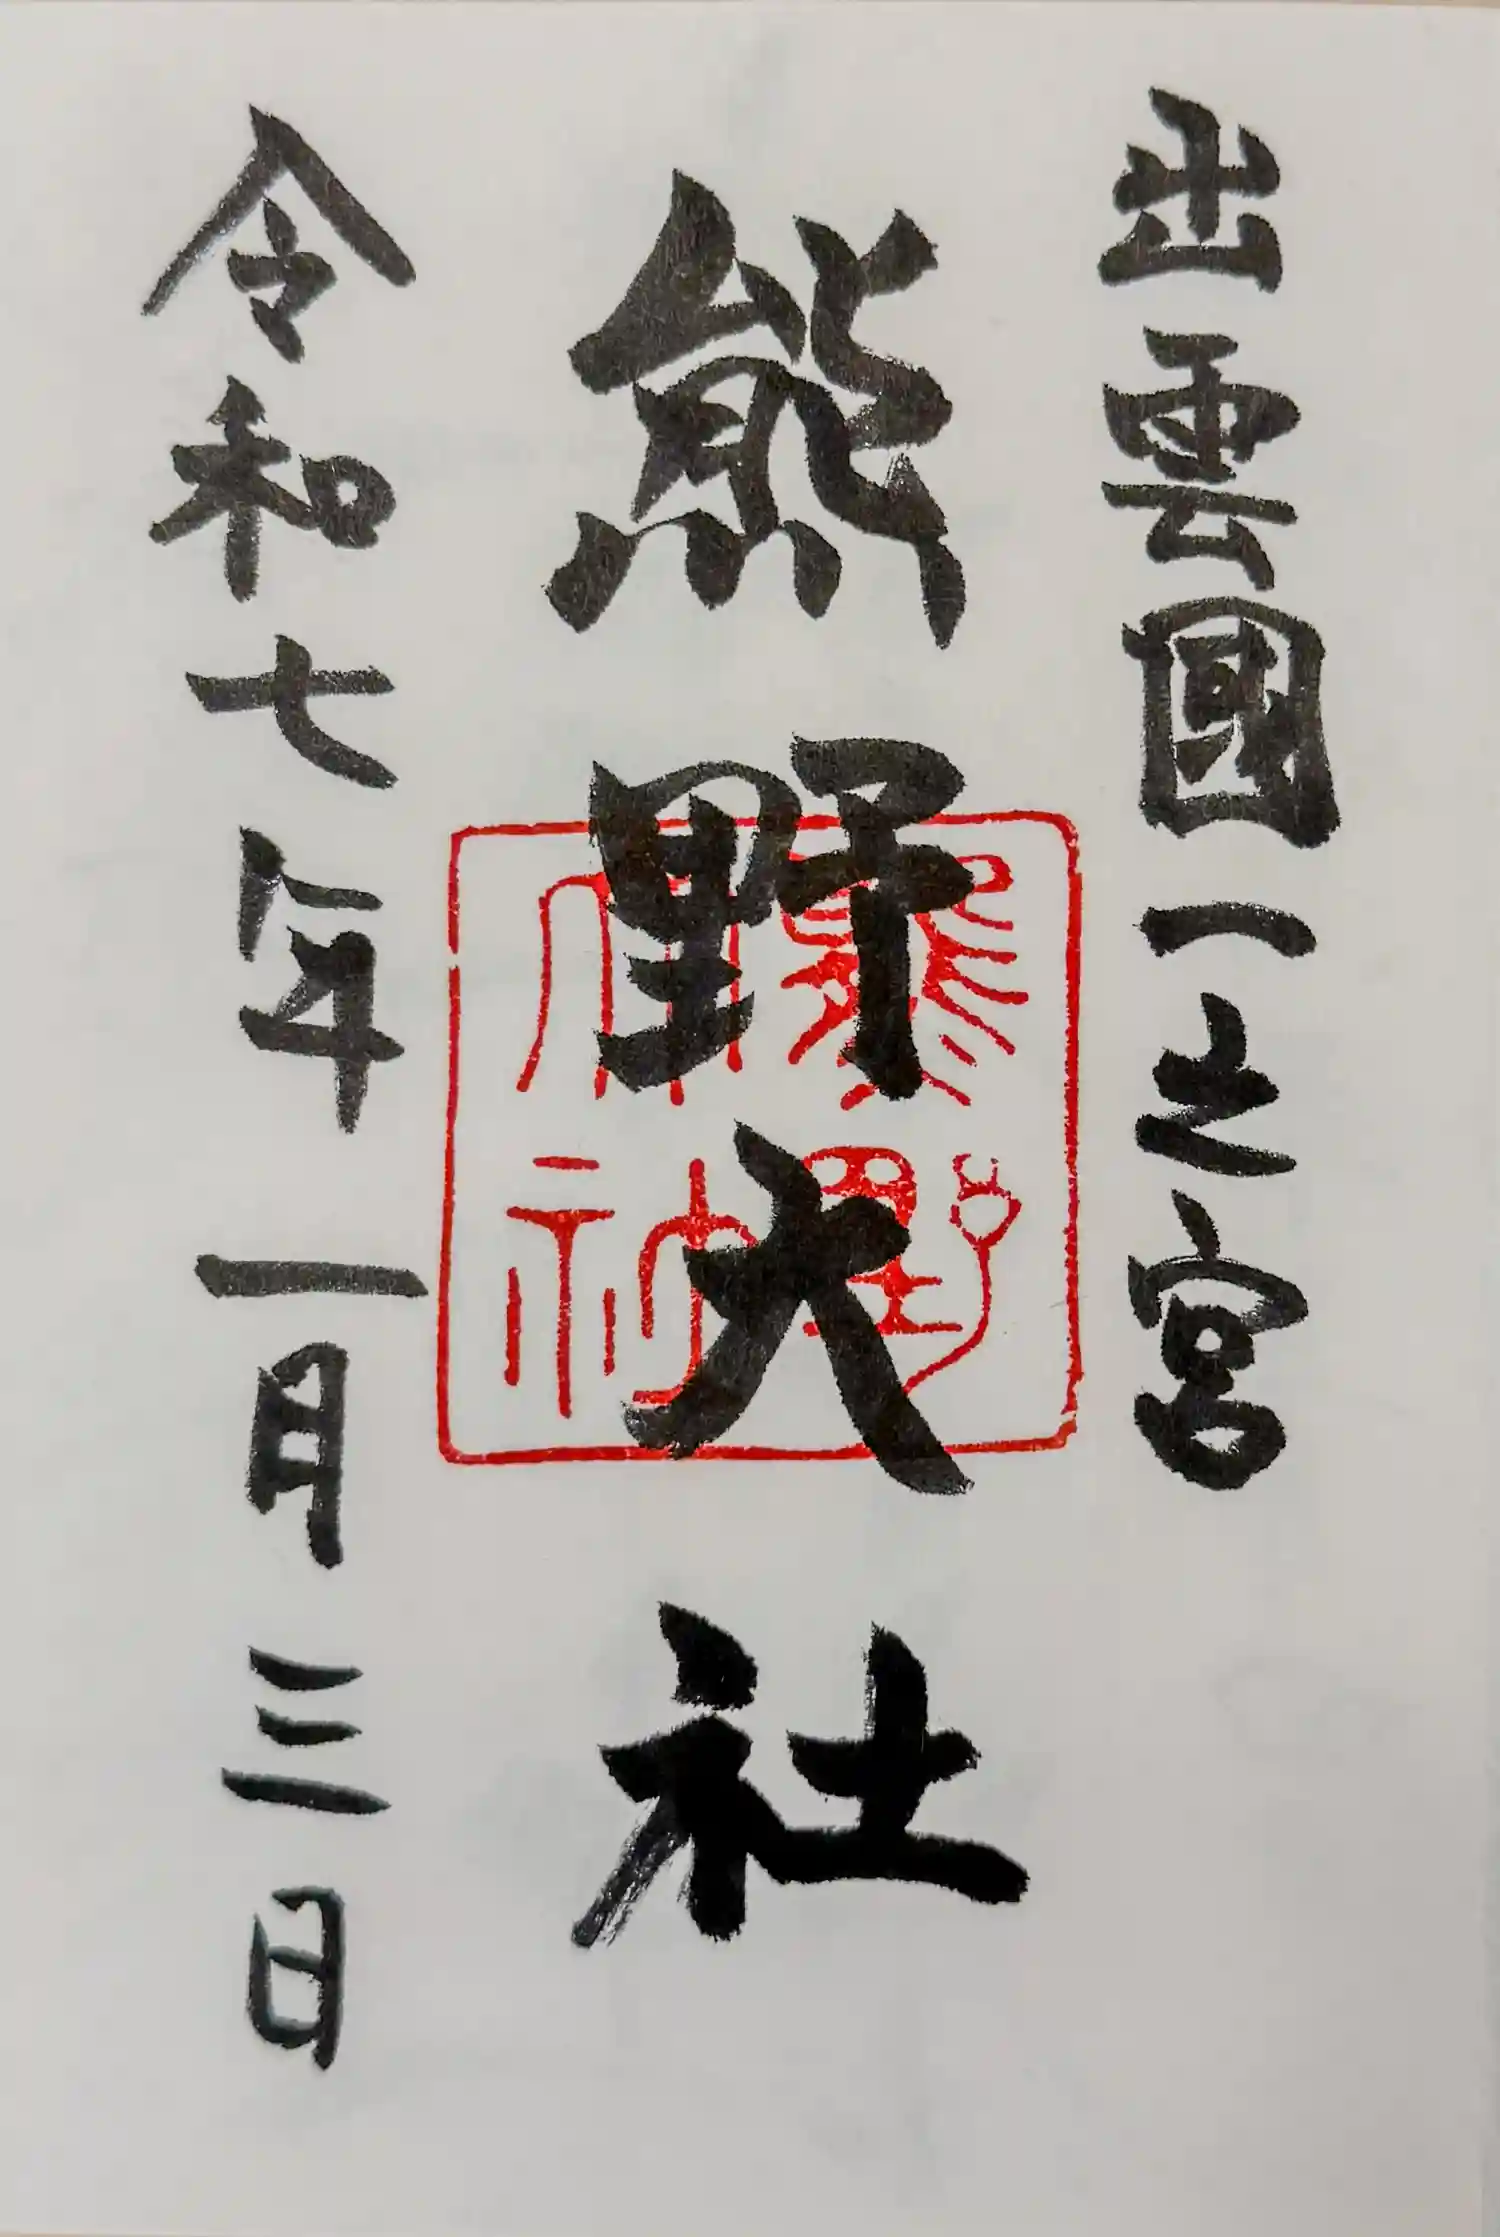 出雲國一之宮
熊野大社
熊野大神
令和七年一月三日